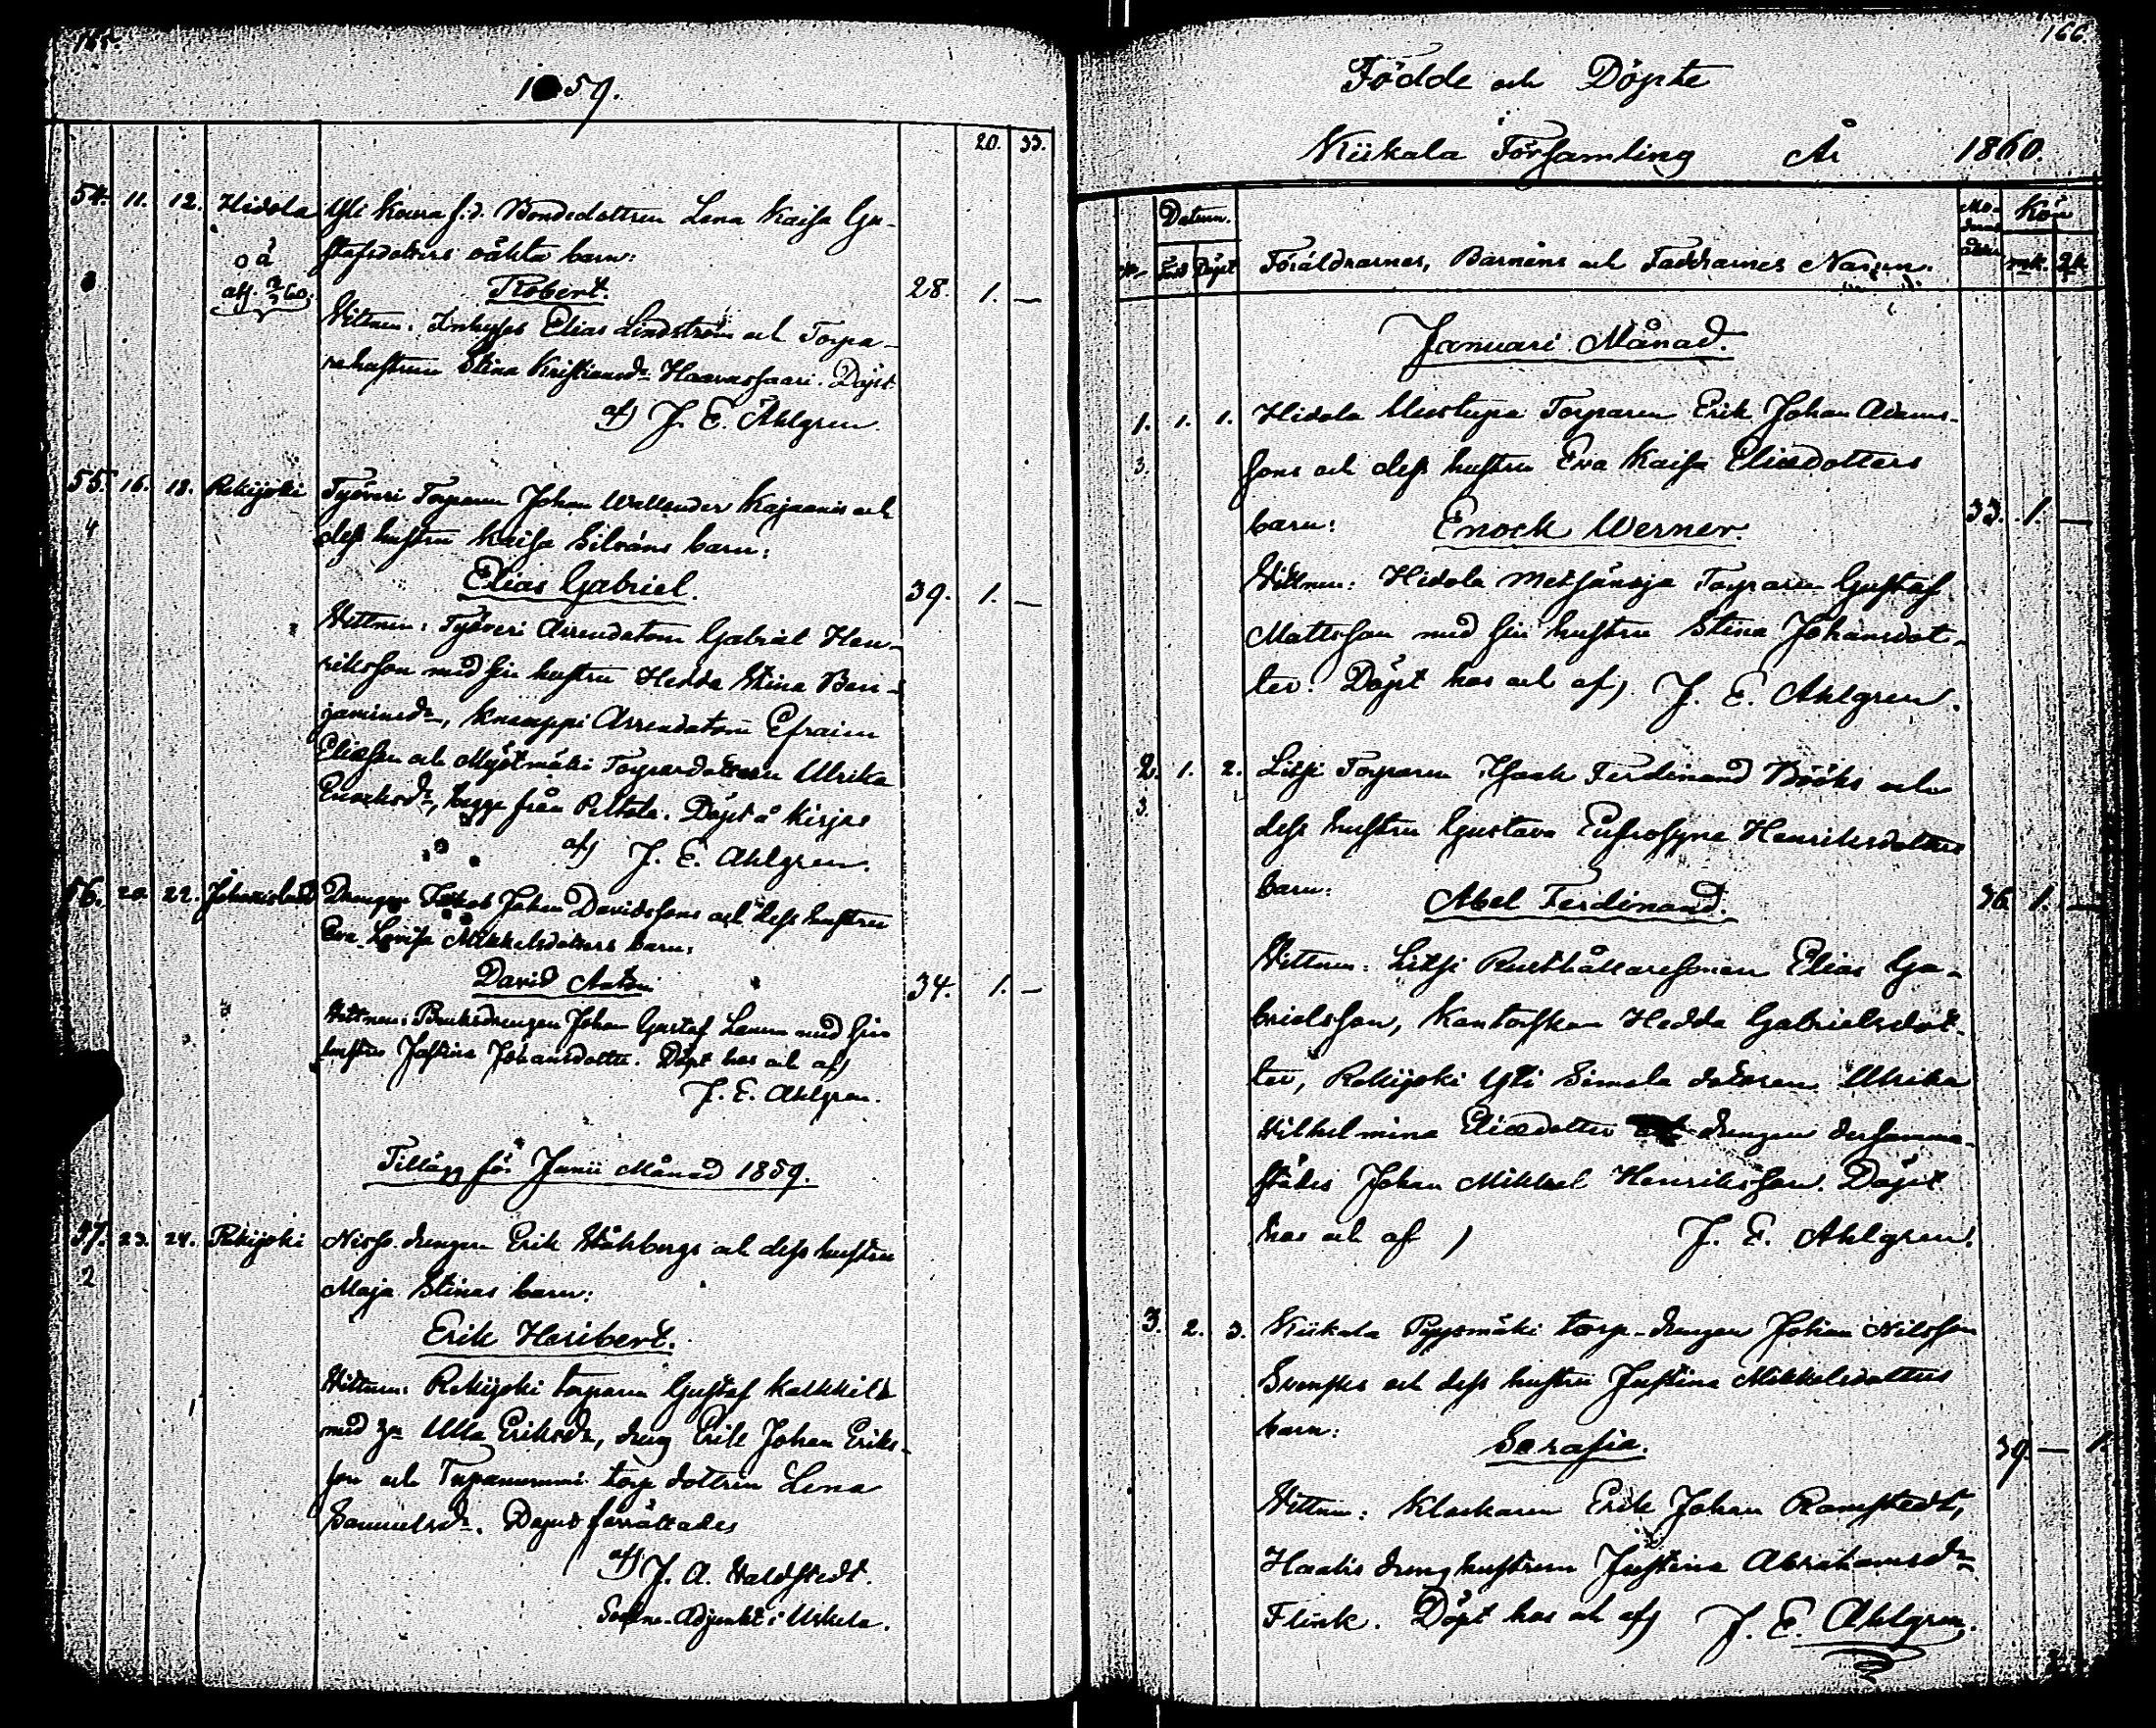 165.
1859.
20. 33.
54. 11. 12. Hidola Yli Koura f.d. Bondedottren Lena Kaisa Gu-
stafsdotters oäkta barn:
o ä
Robert. 28. 1. —
Vittnen: Inhyses Elias Lindström och Torpa-
rehustrun Stina Kristiansdr Haavassaari. Döpt
af) J. E. Ahlgren.
55. 16. 18. Rekijoki Työveri Torparen Johan Wallender Kajanens och
4 dess hustru Kaisa Silvéns barn:
Elias Gabriel. 39. 1. —
Vittnen: Työveri Arrendatorn Gabriel Hen-
riksson med sin hustru Hedda Stina Ben-
jaminsdr, Knaappi Arrendatorn Efraim
Eliasson och Myötmäki Torparedottren Ulrika
Enocksdr, begge från Peltola. Döpt å Kirjas
af) J. E. Ahlgren.
56. 20. 22. Johanislund Drengen Jakob Johan Davidssons och dess hustru
Eva Lovisa Mikkelsdotters barn:
David Anton. 34. 1. —
Vittnen: Bruksdrengen Johan Gustaf Lemm med sin
hustru Justina Johansdotter. Döpt hos och af)
J. E. Ahlgren.
Tillägg för Junii Månad 1859.
57. 23. 24. Rekijoki Nisso drengen Erik Ståhlbergs och dess hustru
2 Maja Stinas barn:
Erik Heribert.
Vittnen: Rekijoki torparen Gustaf Kalkkilä
med h:u Ulla Eriksdr, dreng Erik Johan Eriks-
son och Tupamummi torp dottren Lena
Samuelsdr. Döpet förrättades
af) J. A. Waldstedt.
Sockne-Adjunkt i Uskela.
166.
Födde och Döpte
Kiikala Församling År 1860.
Datum. Mo-
derns
ålder Kön
No Född Döpt Föräldrarnes, Barnens och Faddrarnes Namn. mk. qk
Januari Månad.
1. 1. 1. Hidola Uustupa Torparen Erik Johan Adams-
3. sons och dess hustru Eva Kaisa Eliædotters
barn: Enock Werner. 33. 1. —
Vittnen: Hidola Metsänoja Torparen Gustaf
Mattsson med sin hustru Stina Johansdot-
ter. Döpt hos och af) J. E. Ahlgren.
2. 1. 2. Liipi Torparen Isaak Ferdinand Bööks och
3. dess hustru Gustava Eufrosyne Henriksdotters
barn: Abel Ferdinand. 36 1. —
Vittnen: Liipi Rusthållaresonen Elias Ga-
brielsson, Kantorskan Hedda Gabrielsdot-
ter, Rekijoki Yli Simola dottren Ulrika
Vilhelmina Eliædotter drengen dersamma-
städes Johan Mikkel Henriksson. Döpt
hos och af) J. E. Ahlgren.
3. 2. 3. Kiikala Pyysmäki torp-drengen Johan Nilsson
Svensks och dess hustru Justina Mikkelsdotters
barn: Serafia. 39. — 1.
Vittnen: Klockaren Erik Johan Ramstedt,
Haalis drenghustrun Justina Abrahamsdr
Flink. Döpt hos och af) J. E. Ahlgren.